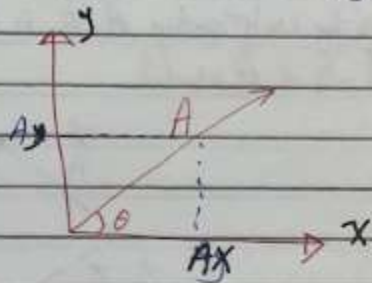 y
A
Ay
θ
Ax
X